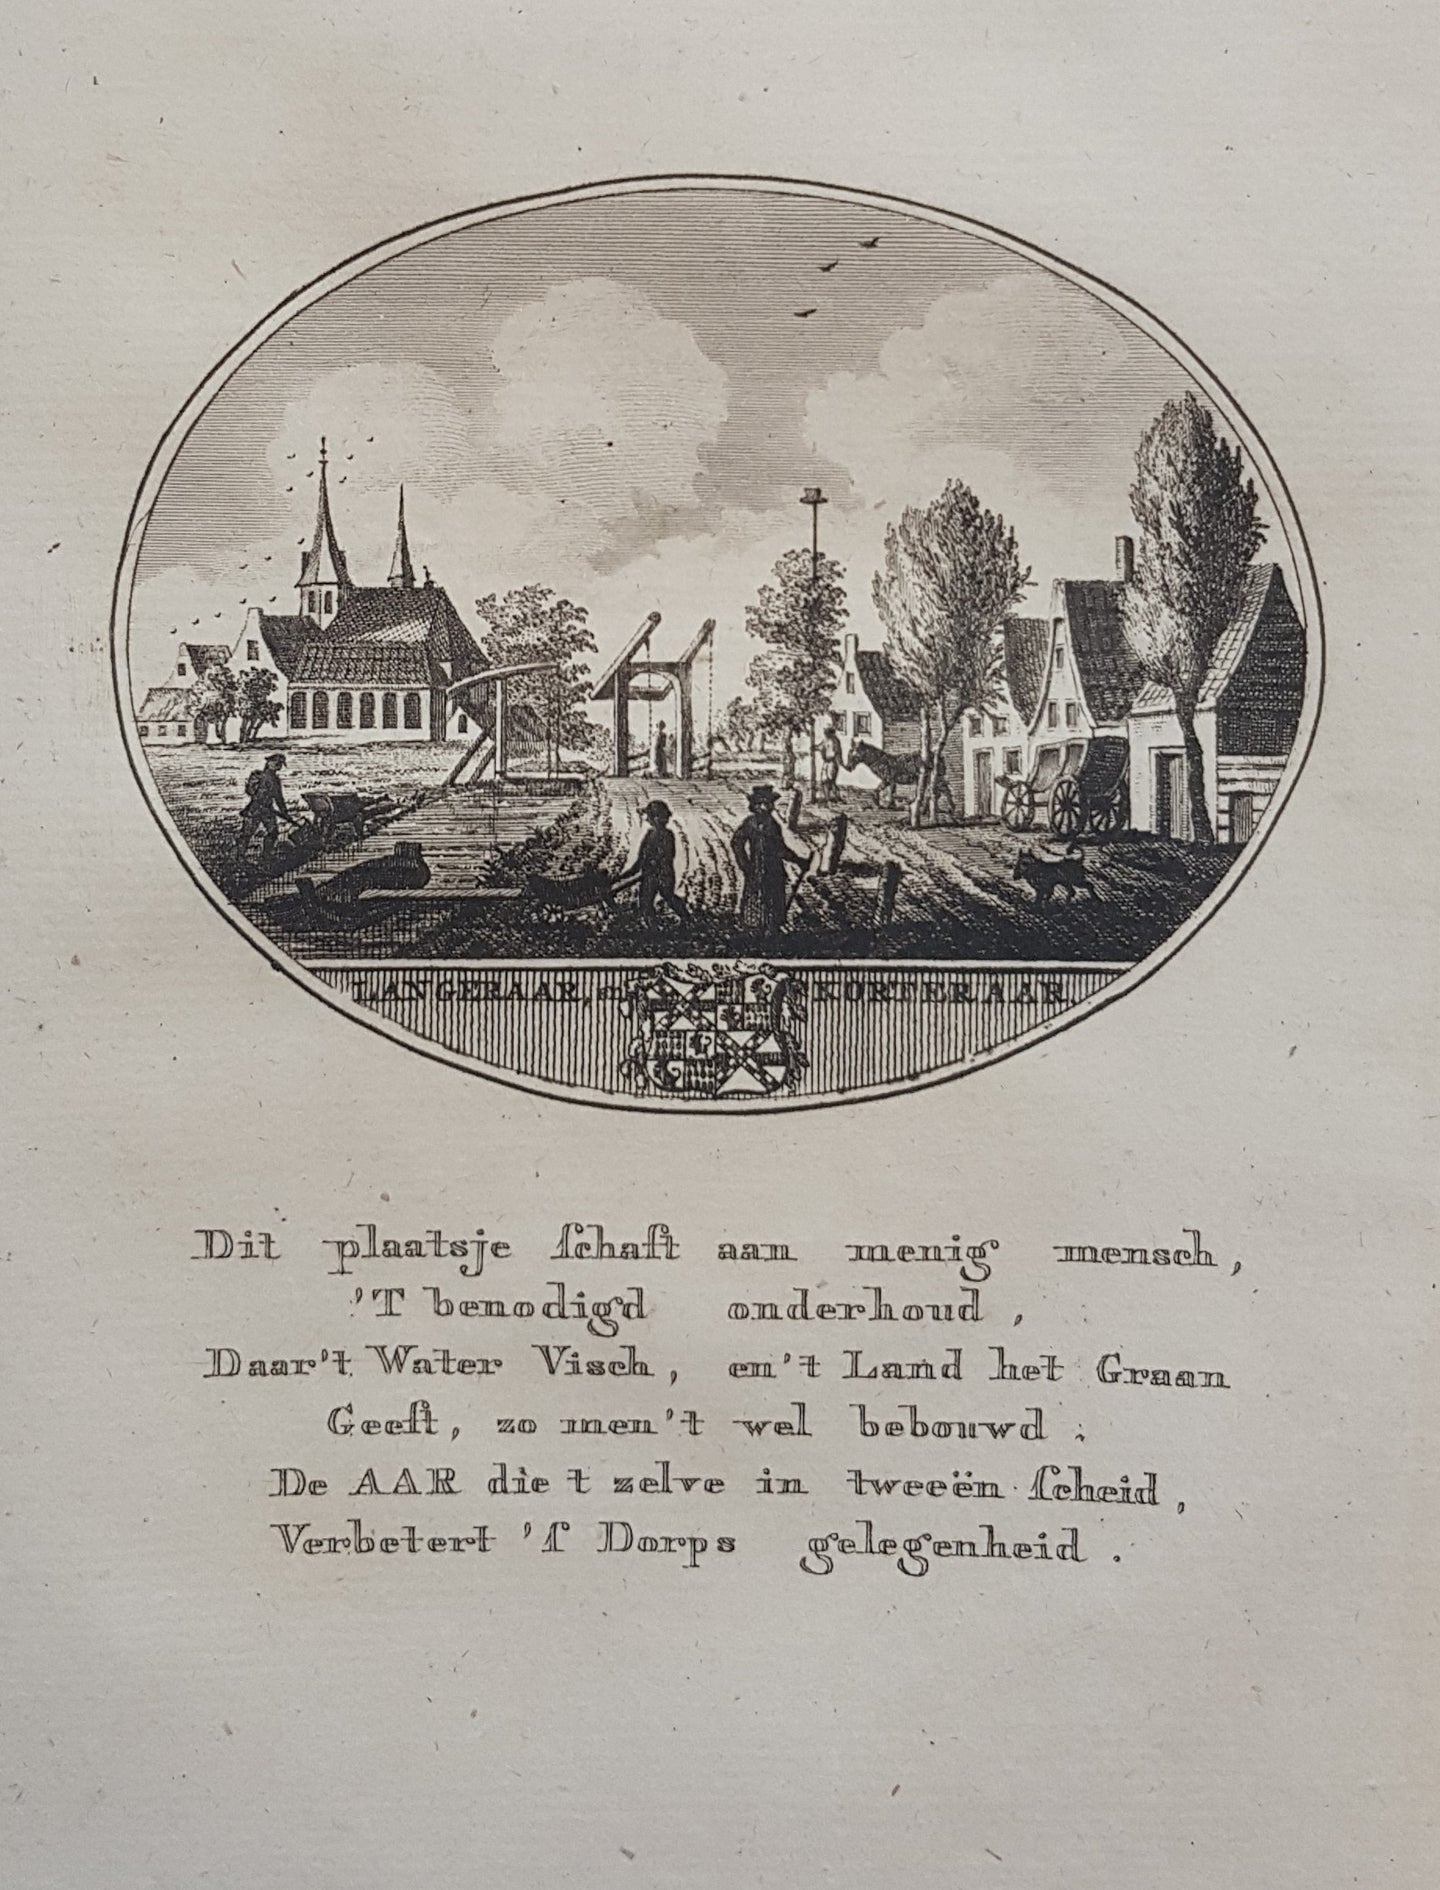 LANGERAAR, en KORTERAAR.
Dit plaatsje ſchaft aan menig mensch,
'T benodigd onderhoud,
Daar't Water Visch, en't Land het Graan
Geeft, zo men't wel bebouwd:
De AAR die t zelve in tweeën ſcheid,
Verbetert 'ſ Dorps gelegenheid.